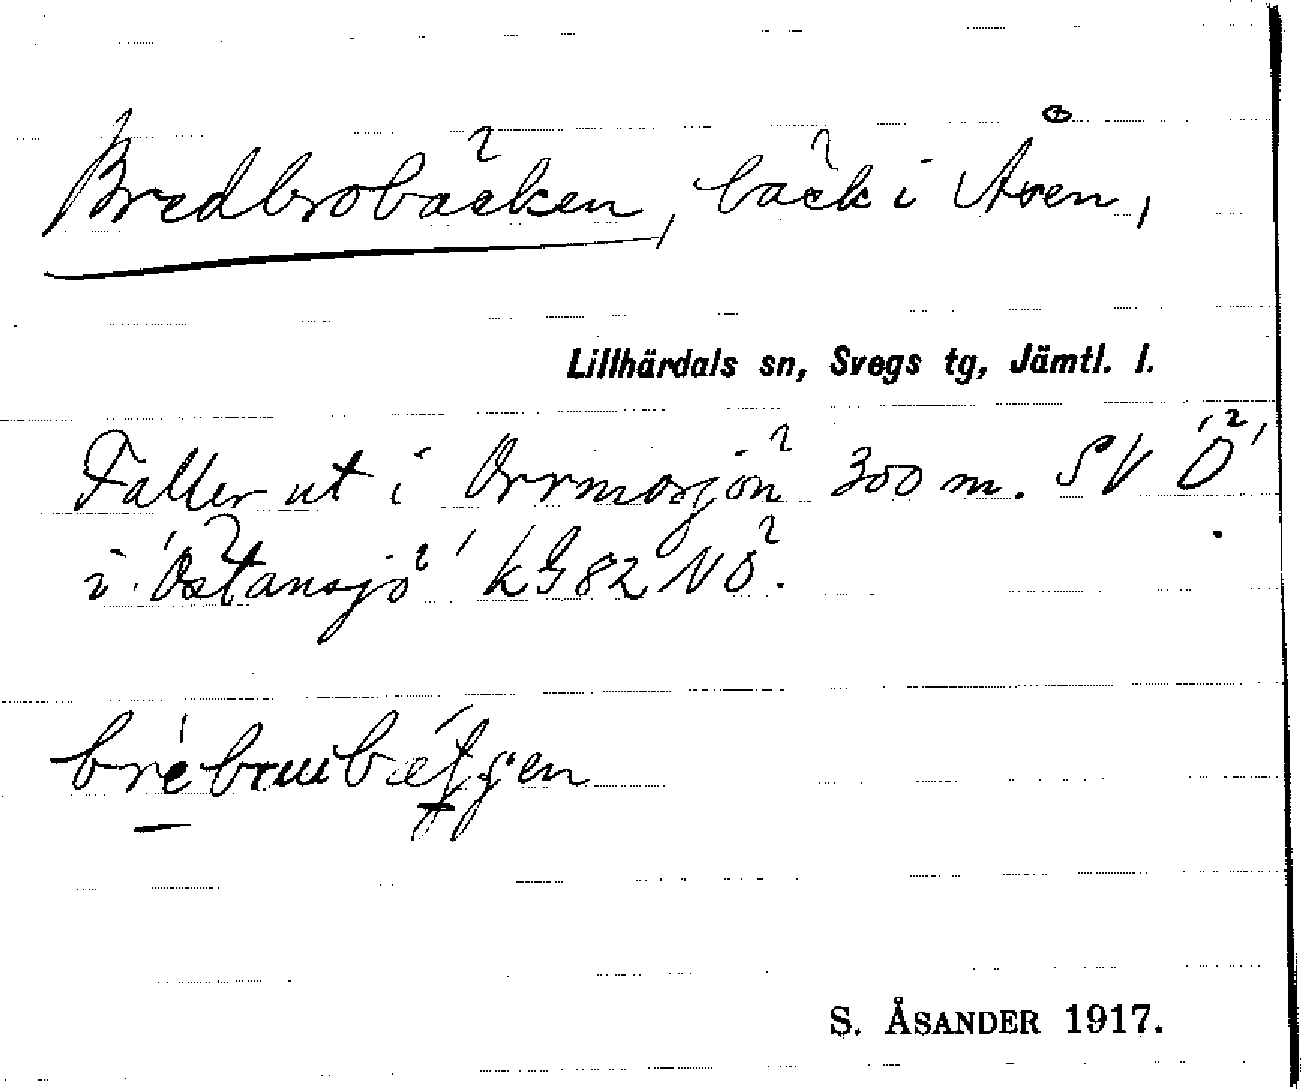 Bredbrobäcken, bäck i Åsen,
Lillhärdals sn, Svegs tg, Jämtl. l.
Faller ut i Orrmosjön 300 m. SV 'Ö'
i 'Östansjö' kG 82 NÖ.
S. ÅSANDER 1917.